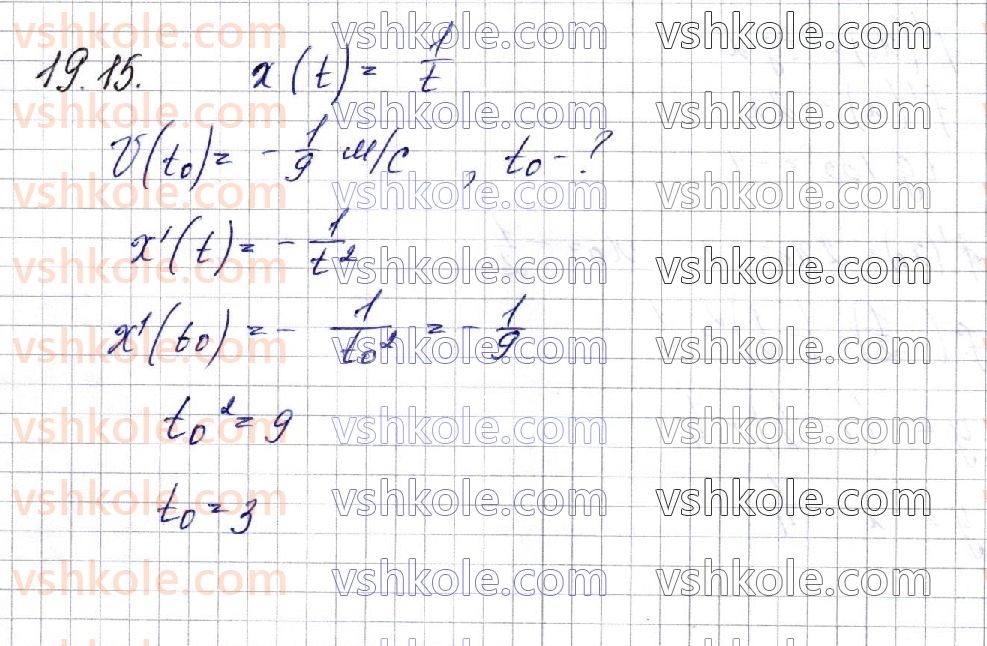 19.15. x(t) = 1/t
V(t₀) = - 1/9 м/с , t₀ - ?
x'(t) = - 1/t²
x'(t₀) = - 1/t₀² = - 1/9
t₀² = 9
t₀ = 3
vshkole.com vshkole.com vshkole.com
vshkole.com vshkole.com vshkole.com
vshkole.com vshkole.com vshkole.com
vshkole.com vshkole.com vshkole.com
vshkole.com vshkole.com vshkole.com
vshkole.com vshkole.com vshkole.com
vshkole.com vshkole.com vshkole.com
vshkole.com vshkole.com vshkole.com